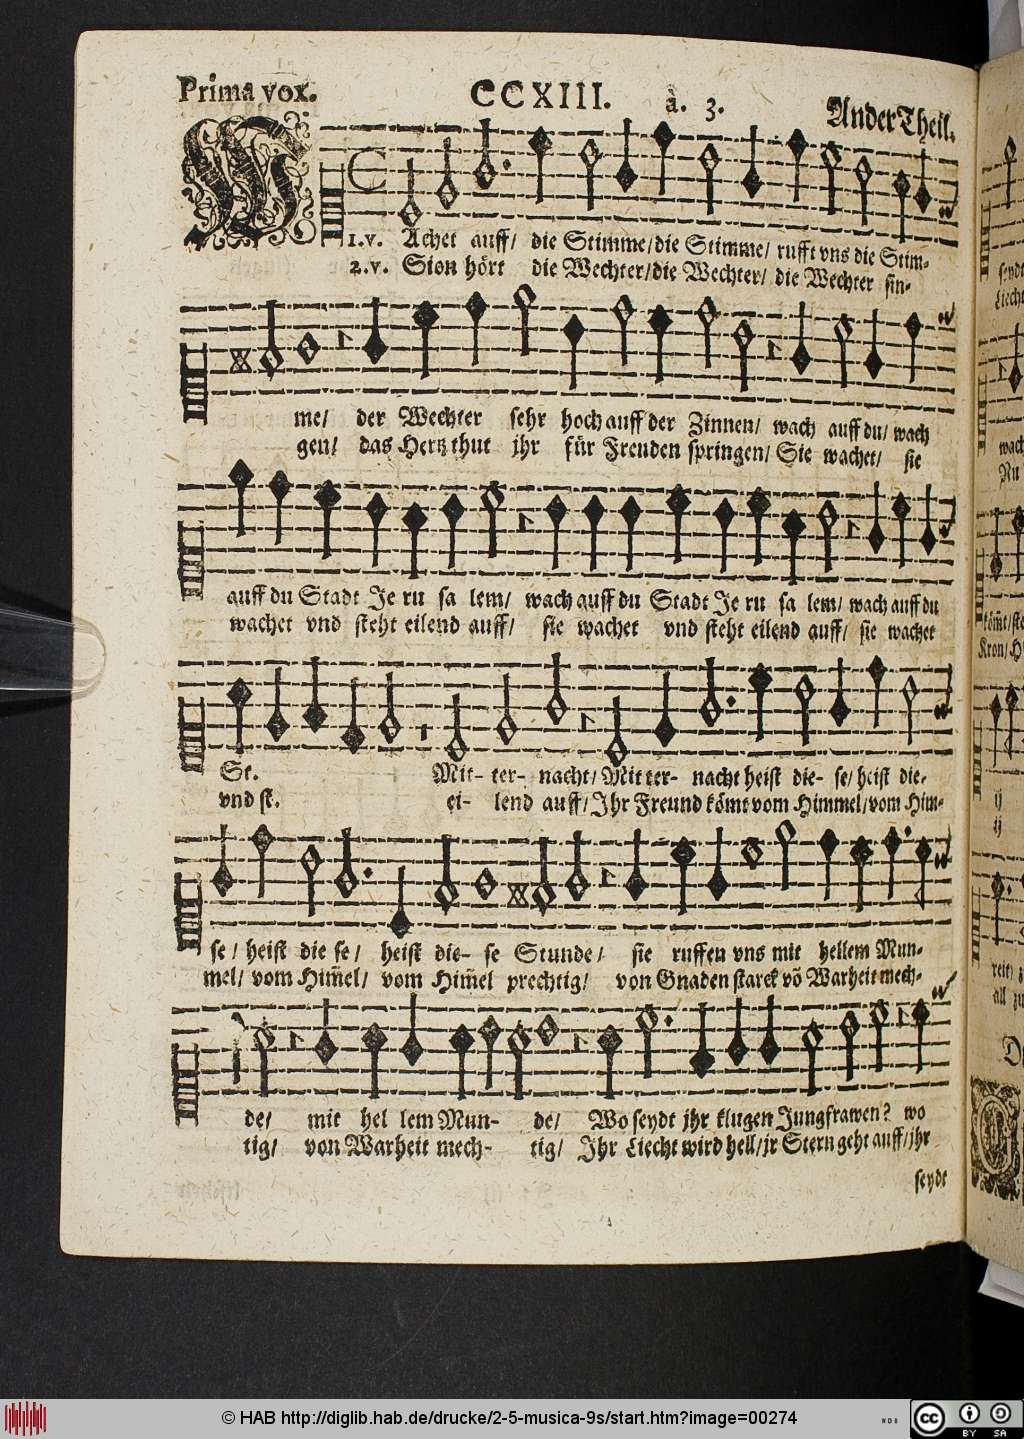 Prima vox. CCXIII. à. 3. Ander Theil.
W
1. v. Achet auff/ die Stimme/die Stimme/ rufft vns die Stim-
2. v. Sion hört die Wechter/die Wechter/ die Wechter sin-
me/ der Wechter sehr hoch auff der Zinnen/ wach auff du/ wach
gen/ das Hertz thut jhr für Freuden springen/ Sie wachet/ sie
auff du Stadt Je ru sa lem/ wach auff du Stadt Je ru sa lem/ wach auff du
wachet vnd steht eilend auff/ sie wachet vnd steht eilend auff/ sie wachet
St. Mit- ter- nacht/ Mit ter- nacht heist die- se/ heist die-
vnd st. ei- lend auff/ Jhr Freund kömt vom Himmel/vom Him-
se/ heist die se/ heist die- se Stunde/ sie ruffen vns mit hellem Mun-
mel/ vom Him̃el/ vom Him̃el prechtig/ von Gnaden starck võ Warheit mech-
de/ mit hel lem Mun- de/ Wo seydt jhr klugen Jungfrawen? wo
tig/ von Warheit mech- tig/ Jhr Liecht wird hell/ jr Stern geht auff/ jhr
seydt
© HAB http://diglib.hab.de/drucke/2-5-musica-9s/start.htm?image=00274
cc BY SA